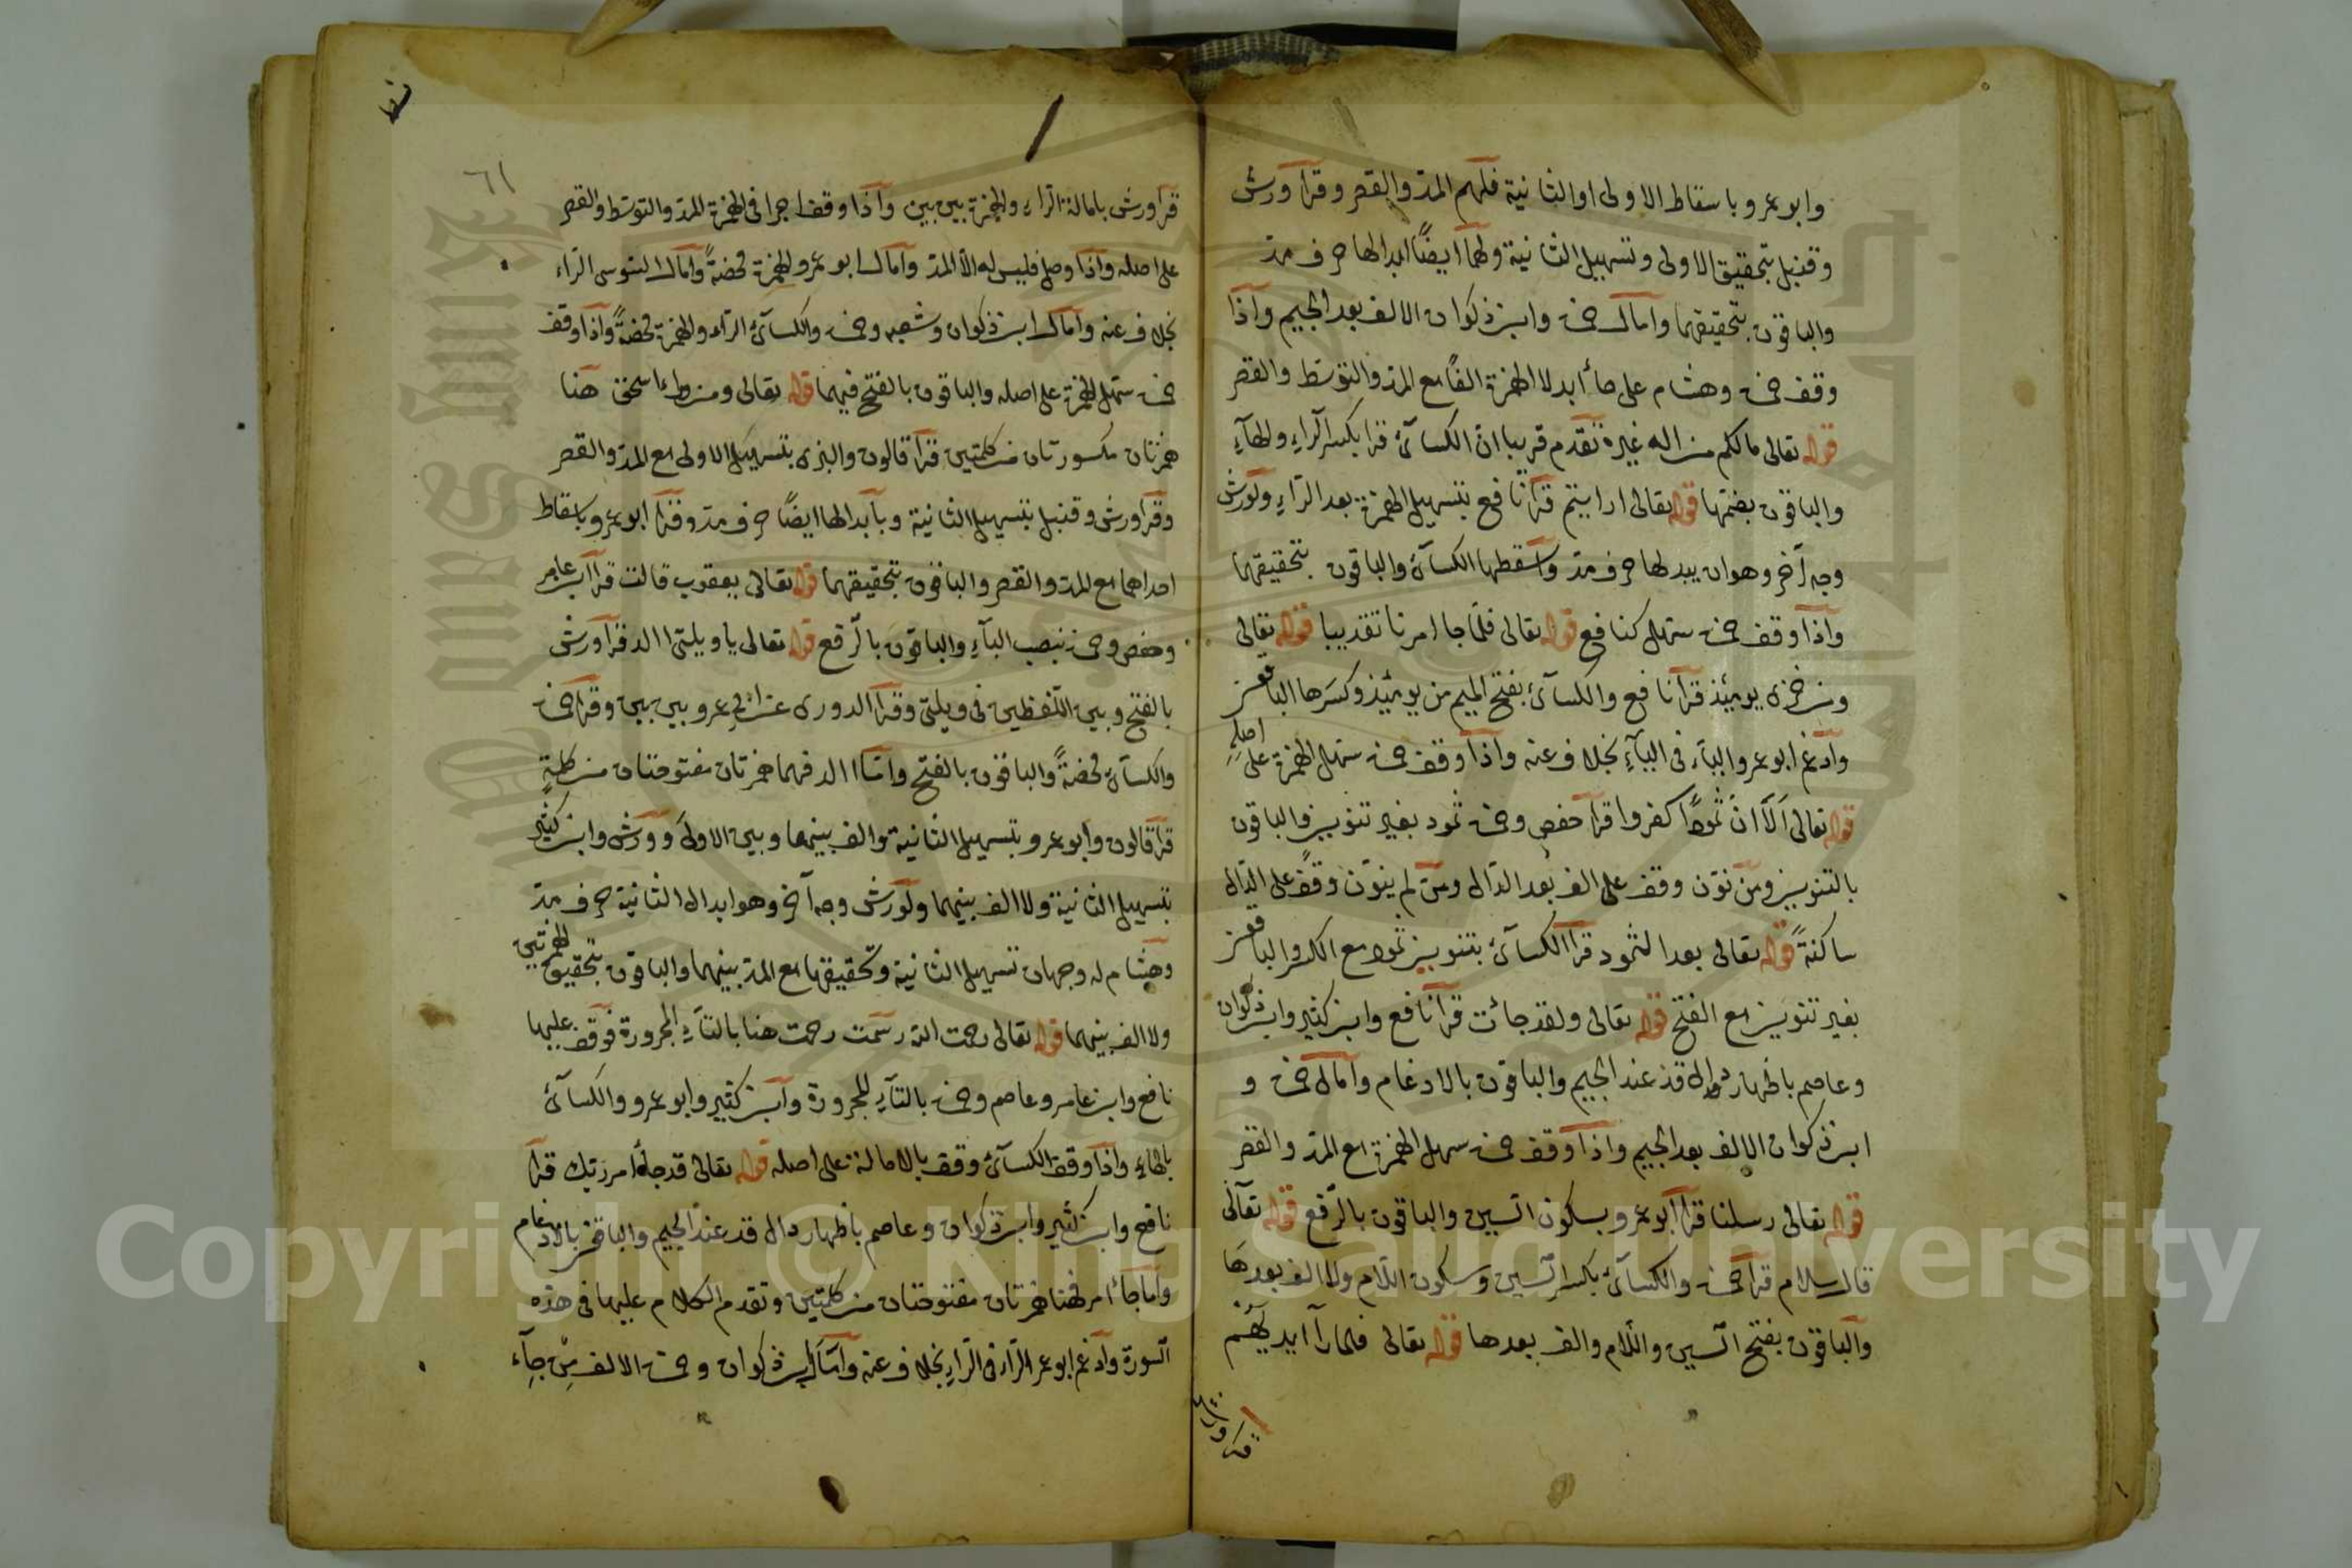 وابو عمرو باسقاط الاولى او الثانية فلهم المدّ والقصر وقرأ ورش
وقنبل بتحقيق الاولى وتسهيل الثانية ولهما ايضًا ابدالها حرف مدّ
والباقون بتحقيقهما وامال حمزة وابن ذكوان الالف بعد الجيم واذا
وقف حمزة وهشام على جاء ابدلا الهمزة الفًا مع المدّ والتوسّط والقصر
قوله تعالى مالكم من اله غيره تقدم قريبا ان الكسآئي قرا بكسر الراء والهآء
والباقون بضمّها قوله تعالى ارايتم قرأ نافع بتسهيل الهمزة بعد الرّاء ولورش
وجه آخر وهو ان يبدلها حرف مدّ واسقطها الكسآئي والباقون بتحقيقها
واذا وقف حمزة سهّل كنافع قوله تعالى فلمّا جا امرنا تقد بيبا قوله تعالى
ومن خزى يومئذ قرأ نافع والكسآئي بفتح الميم من يومئذ وكسرها الباقون
وادغم ابو عمرو اليآء فى اليآء بخلاف عنه واذا وقف حمزة سهّل الهمزة على اصله
قوله تعالى اَلَآ انّ ثمودًا كفروا قرأ حفص وحمزة ثمود بغير تنوين والباقون
بالتنوين ومن نوّن وقف على الف بعد الدّال ومن لم ينوّن وقف على الدّال
ساكنةً قوله تعالى بعدا لثمود قرأ الكسآئي بتنوين ثمود مع الكسر والباقون
بغير تنوين مع الفتح قوله تعالى ولقد جائت قرأ نافع وابن كثير وابن ذكوان
وعاصم باظهار دال قد عند الجيم والباقون بالادغام وامال حمزة و
ابن ذكوان الالف بعد الجيم واذا وقف حمزة سهل الهمزة مع المدّ والقصر
قوله تعالى رسلنا قرأ ابو عمرو بسكون السّين والباقون بالرّفع قوله تعالى
قال سلام قرأ حمزة والكسآئي بكسر السّين وسكون اللّام ولا الف بعدها
والباقون بفتح السّين واللّام والف بعدها قوله تعالى فلما رآ ايديهم
قرأ ورش
٦١
قرأ ورش بامالة الرّاء والهمزة بين بين واذا وقف اجرا فى الهمزة المدّ والتوسّط والقصر
على اصله واذا وصل فليس له الّا المدّ وامال ابو عمرو الهمزة محضةً وامال السّوسى الرّاء
بخلاف عنه وامال ابن ذكوان وشعبه وحمزة والكسآئي الرّاء والهمزة محضةً واذا وقف
حمزة سهّل الهمزة على اصله والباقون بالفتح فيهما قوله تعالى ومن وراء اسحق هنا
همزتان مكسورتان من كلمتين قرأ قالون والبزى بتسهيل الاولى مع المدّ والقصر
وقرأ ورش وقنبل بتسهيل الثانية وبابدالها ايضًا حرف مدّ وقرأ ابو عمرو باسقاط
احداهما مع المدّ والقصر والباقون بتحقيقهما قوله تعالى يعقوب قالت قرأ ابن عامر
وحفص وحمزة بنصب البآء والباقون بالرّفع قوله تعالى يا ويلتى االد قرأ ورش
بالفتح وبين اللّفظين فى ويلتى وقرأ الدورى عن ابى عمرو بين بين وقرأ حمزة
والكسآئي محضةً والباقون بالفتح وامّا االد فهما همزتان مفتوحتان من كلمةٍ
قرأ قالون وابو عمرو بتسهيل الثانية والف بينها وبين الاولى وورش وابن كثير
بتسهيل الثانية ولا الف بينهما ولورش وجه آخر وهو ابدال الثانية حرف مدّ
وهشام له وجهان تسهيل الثانية وتحقيقها مع المدّ بينهما والباقون بتحقيق الهمزتين
ولا الف بينهما قوله تعالى رحمت الله رسمت رحمت هنا بالتآء المجرورة فوقف عليها
نافع وابن عامر وعاصم وحمزة بالتآء المجرورة وابن كثير وابو عمرو والكسآئي
بالهاء واذا وقف الكسآئي وقف بالامالة على اصله قوله تعالى قد جآء امر ربك قرأ
نافع وابن كثير وابن ذكوان وعاصم باظهار دال قد عند الجيم والباقون بالادغام
وامّا جآء امر فهنا همزتان مفتوحتان من كلمتين وتقدم الكلام عليها فى هذه
السّورة وادغم ابو عمر الرّاء فى الرّاء بخلاف عنه وامال ابن ذكوان وحمزة الالف من جآء
Copyright © King Saud University